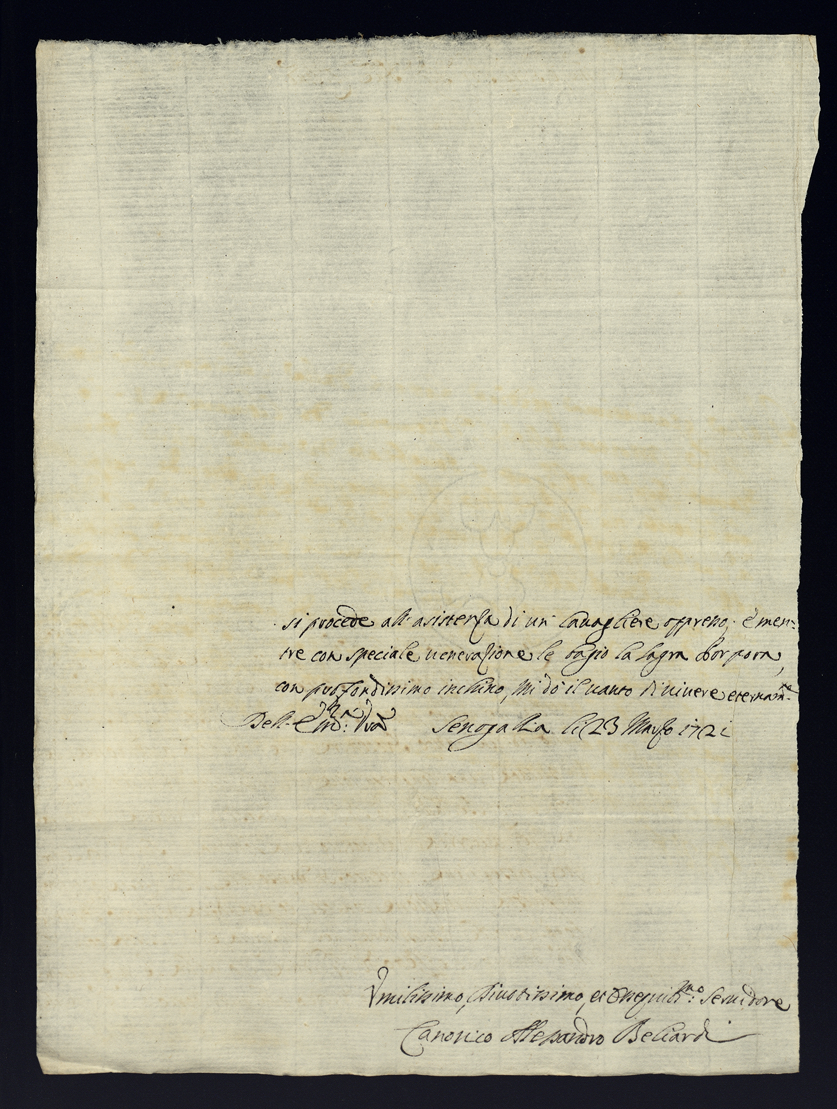 si procede all'asistenza di un' Cavagliere oppresso. E men-
tre con speciale venerazione le bagio la sagra Porpora,
con profondissimo inchino, mi dò il vanto di vivere eternam.te
Dell'Em.za V'ra Senogallia li 23 Marzo 1721
Vmilissimo, Divotissimo, et Ossequis.mo Servidore
Canonico Alessandro Beliardi